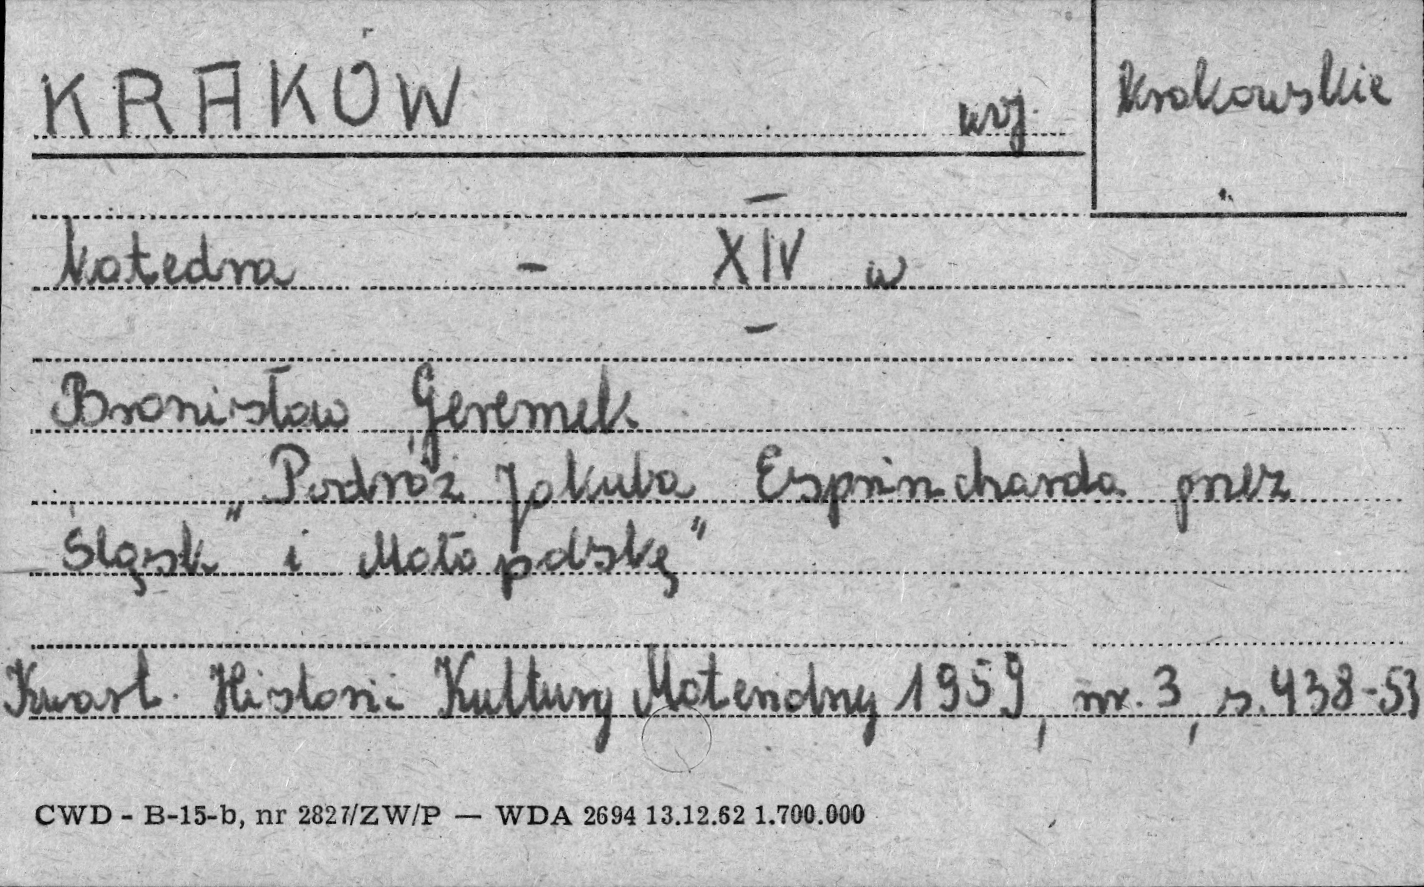 KRAKÓW woj. krakowskie
Katedra - XIV w
Bronisław Geremek
"Podróż Jakuba Esprincharda przez
Śląsk" i Małopolskę"
Kwart. Historii Kultury Materialnej 1959, nr. 3, s. 438-53
CWD - B-15-b, nr 2827/ZW/P — WDA 2694 13.12.62 1.700.000